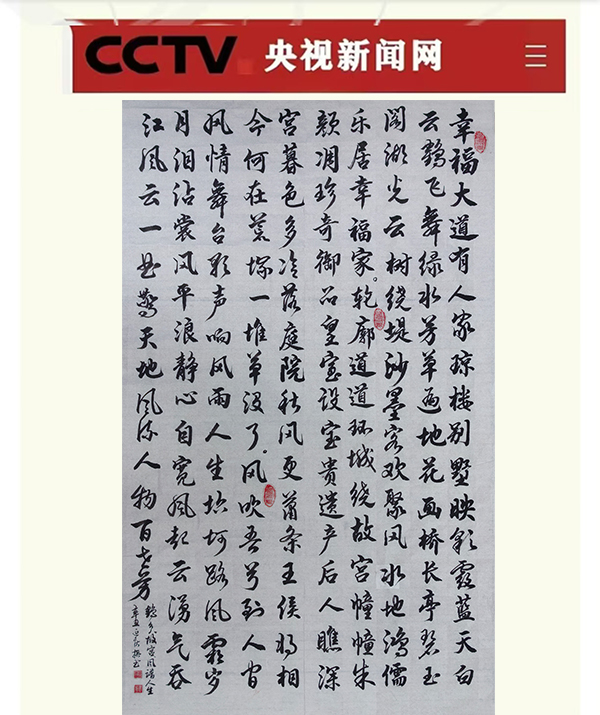 CCTV 央视新闻网
幸福大道有人家琼楼别墅映彩霞蓝天白
云鹤飞舞绿水芳草遍地花画桥长亭碧玉
阁湖光云树绕堤沙墨客欢聚风水地鸿儒
乐居幸福家。乾廊道道环城绕故宫幢幢朱
颜凋珍奇御品皇室设宝贵遗产后人瞧深
宫暮色多冷落庭院秋风更萧条王侯将相
今何在荒塚一堆草没了。风吹吾兮到人间
风情舞台影声响风雨人生坎坷路风霜岁
月泪沾裳风平浪静心自宽风起云涌气吞
江风云一出惊天地风流人物百世芳